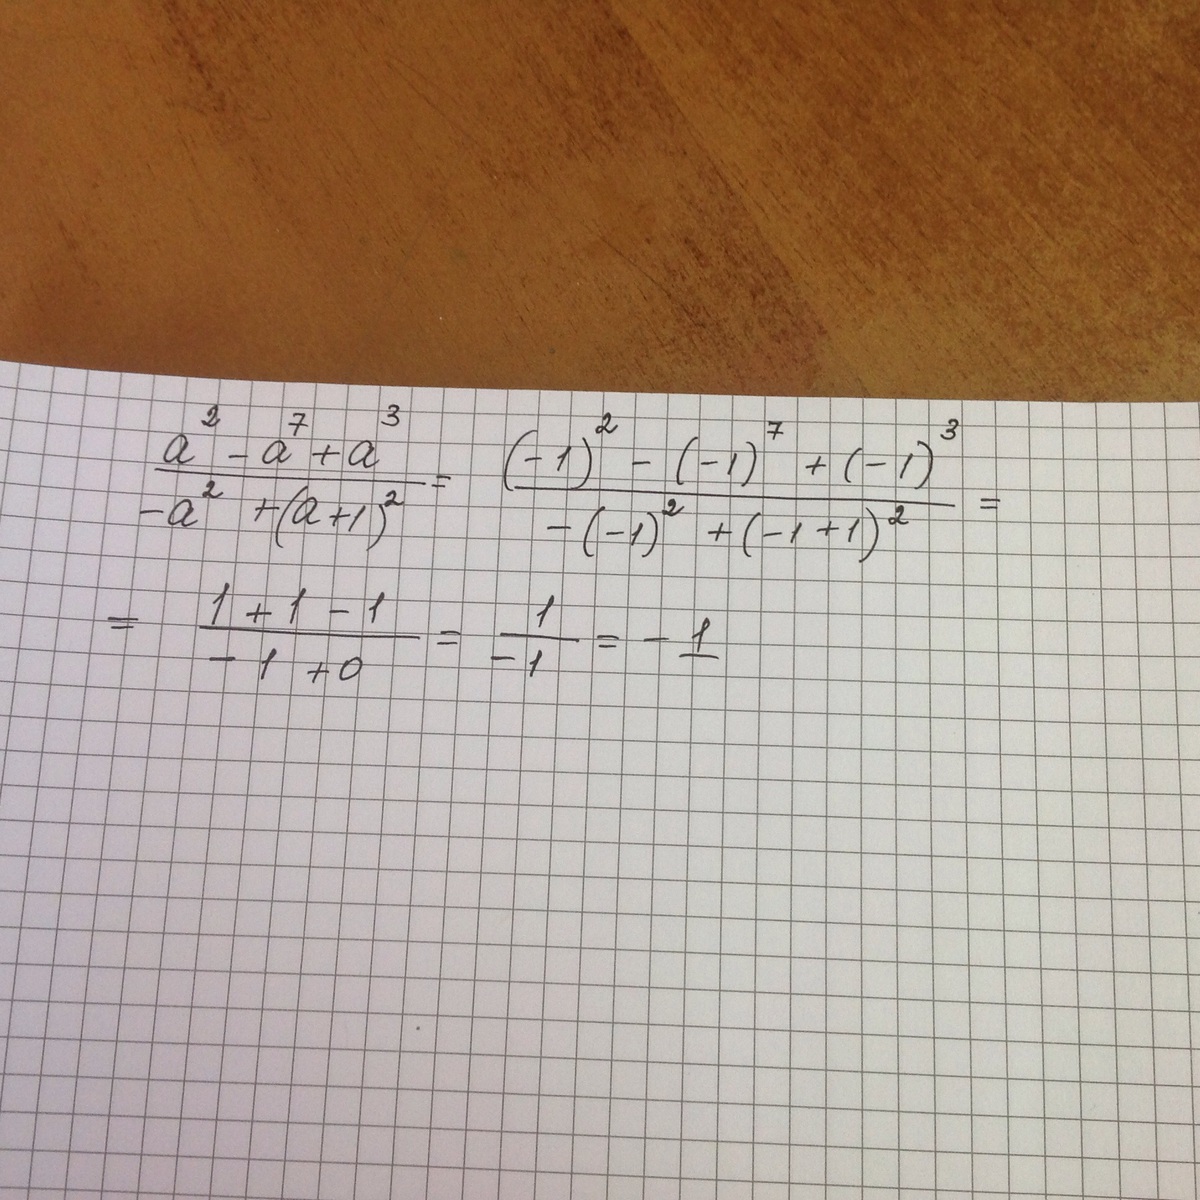 (a² - a⁷ + a³)/(-a² + (a+1)²) = ((-1)² - (-1)⁷ + (-1)³)/(-(-1)² + (-1+1)²) =
= (1 + 1 - 1)/(-1 + 0) = 1/-1 = -1